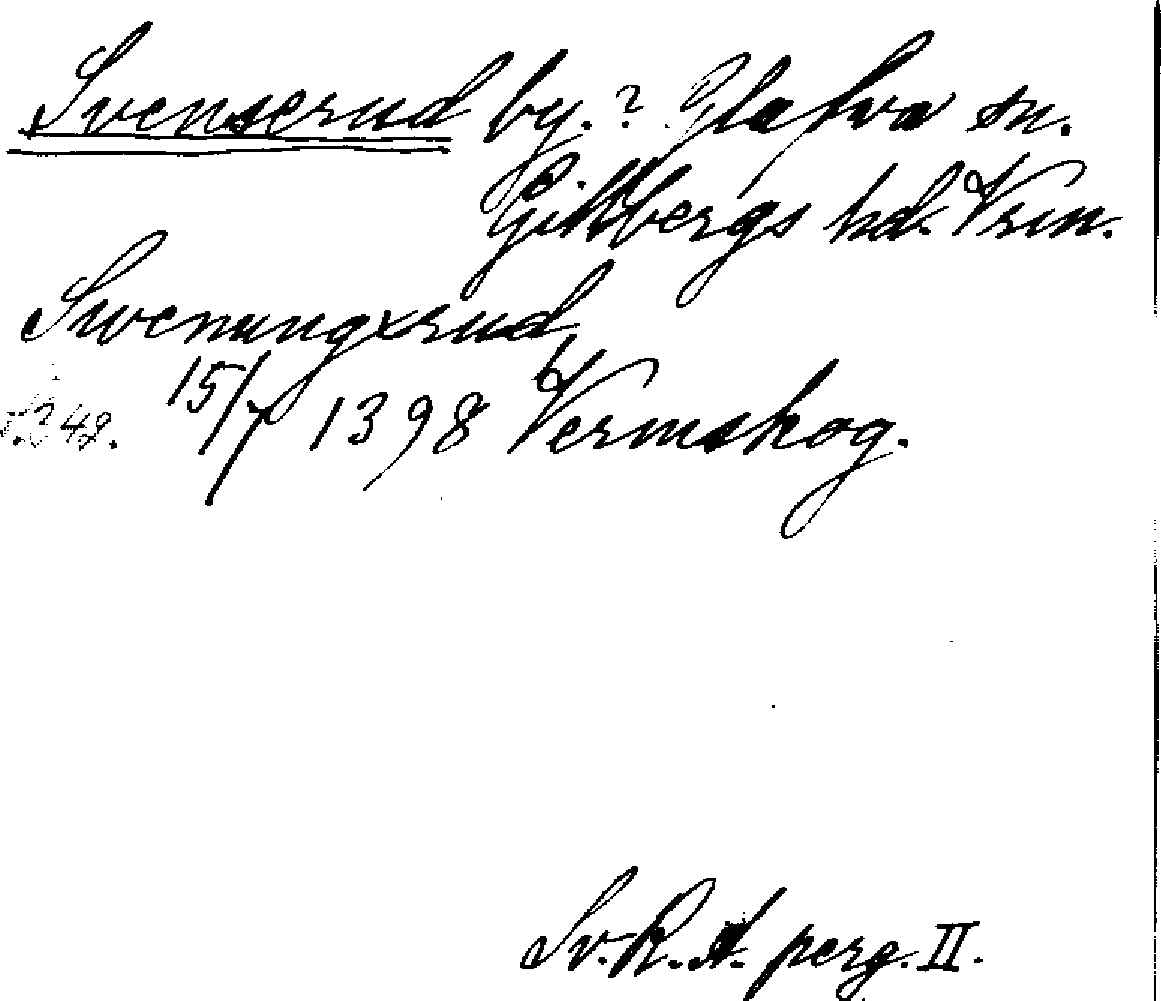 Svenserud by. ? Glafva sn.
Gillbergs hd. Vrm.
Swenungxrud
S. 348. 15/7 1398 Vermskog.
Sv. R. A. perg. II.